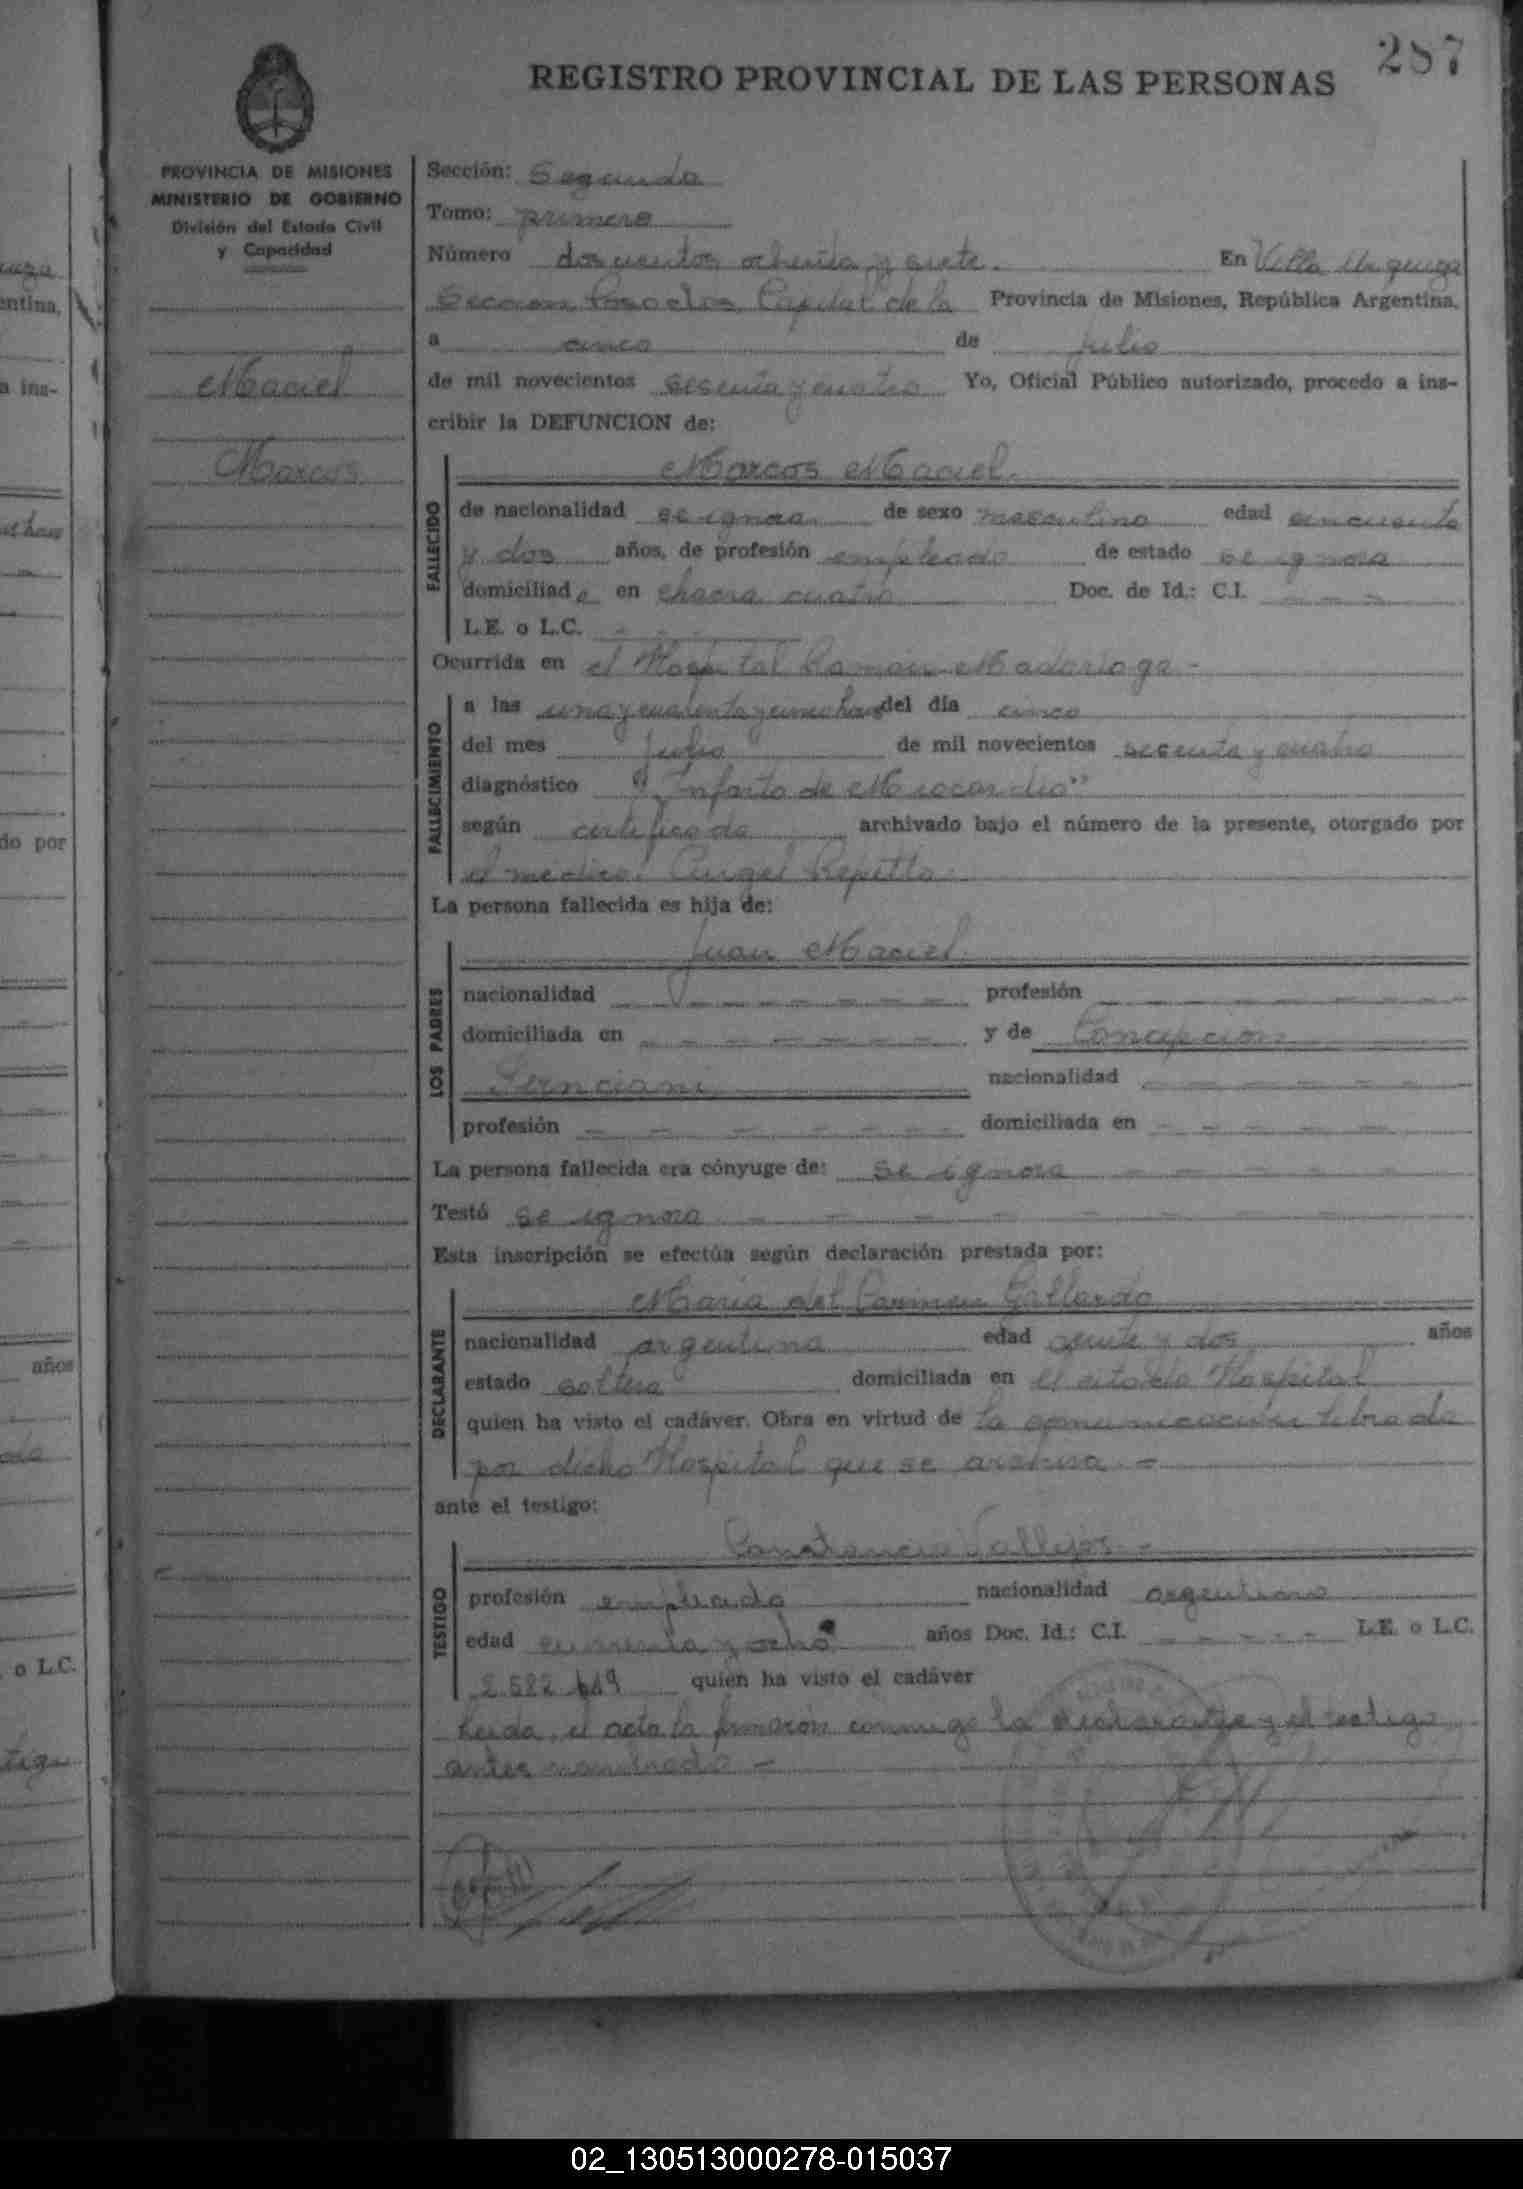 287
REGISTRO PROVINCIAL DE LAS PERSONAS
PROVINCIA DE MISIONES
MINISTERIO DE GOBIERNO
División del Estado Civil
y Capacidad
Maciel
Marcos
Sección: Segunda
Tomo: primero
Número doscientos ochenta y siete. En Villa Urquiza
Sección Posadas Capital de la Provincia de Misiones, República Argentina,
a cinco de Julio
de mil novecientos sesenta y cuatro Yo, Oficial Público autorizado, procedo a ins-
cribir la DEFUNCION de:
Marcos Maciel.
FALLECIDO
de nacionalidad se ignora de sexo masculino edad cincuenta
y dos años, de profesión empleado de estado se ignora
domiciliado en chacra cuatro Doc. de Id.: C.I. - - -
L.E. o L.C. - - -
Ocurrida en el Hospital Ramón Madariaga -
FALLECIMIENTO
a las una y cuarenta y cinco horas del día cinco
del mes Julio de mil novecientos sesenta y cuatro
diagnóstico "Infarto de Miocardio"
según certificado archivado bajo el número de la presente, otorgado por
el médico: Angel Repetto.
La persona fallecida es hija de:
LOS PADRES
Juan Maciel.
nacionalidad - - - - - - profesión - - - - - -
domiciliada en - - - - - - y de Concepción
nacionalidad - - - - - -
profesión - - - - - - domiciliada en - - - - -
La persona fallecida era cónyuge de: se ignora - - - - -
Testó se ignora - - - - - - -
Esta inscripción se efectúa según declaración prestada por:
DECLARANTE
Maria del Carmen Gallardo
nacionalidad argentina edad veinte y dos años
estado soltera domiciliada en el citado Hospital
quien ha visto el cadáver. Obra en virtud de la comunicación librada
por dicho Hospital que se archiva. -
ante el testigo:
TESTIGO
Constancio Vallejos. -
profesión empleado nacionalidad argentino
edad cuarenta y ocho años Doc. Id.: C.I. - - - - - L.E. o L.C.
2.582.619 quien ha visto el cadáver
Leida el acta la firmaron conmigo la declarante y el testigo
antes nombrado -
uza
entina,
a ins-
do por
años
o L.C.
tigo
02_130513000278-015037